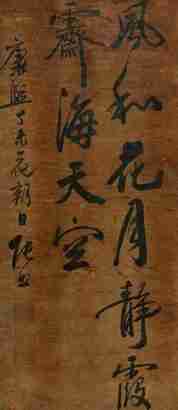 風和花月靜霞
霽海天空
康熙丁未花朝日